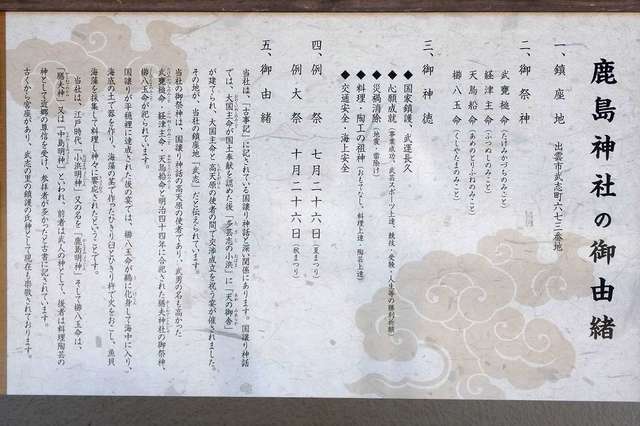 鹿島神社の御由緒
一、鎮座地　出雲市武志町六七三番地
二、御祭神
武甕槌命（たけみかづちのみこと）
経津主命（ふつぬしのみこと）
天鳥船命（あめのとりふねのみこと）
櫛八玉命（くしやたまのみこと）
三、御神徳
◆国家鎮護、武運長久
◆心願成就（事業成功、武芸スポーツ上達、競技・受験・人生等の勝利祈願）
◆災禍消除（地震・雷除け）
◆料理・陶工の祖神（おもてなし、料理上達・陶芸上達）
◆交通安全・海上安全
四、例祭　七月二十六日（夏まつり）
例大祭　十月二十六日（秋まつり）
五、御由緒
当社は、『古事記』に記されている国譲り神話と深い関係にあります。国譲り神話
では、大国主命が国土奉献を認めた後、「多芸志の小浜」に「天の御舎」
が建てられ、大国主命と高天原の使者の間で交渉成立を祝う宴が催されました。
その地が、当社の鎮座地「武志」だと伝えられています。
当社の御祭神は、国譲り神話の高天原の使者であり、武勇の名も高かった
武甕槌命・経津主命・天鳥船命と明治四十四年に合祀された膳夫神社の御祭神、
櫛八玉命が祀られています。
国譲りが平穏裡に達成された後の宴では、櫛八玉命が鵜に化身して海中に入り、
海底の土で器を作り、海藻の茎で作ったひきり臼とひきり杵で火をおこし、魚貝
海藻を採集して料理し神々に饗応されたということです。
当社は、江戸時代「小浜明神」又の名を「鹿島明神」そして櫛八玉命は、
「膳夫神」又は「中島明神」といわれ、前者は武人の神として、後者は料理陶芸の
神として近郷の尊信を受け、参拝者が多かったと古書に記されています。
古くから宮座があり、武志の里の鎮護の氏神として現在も崇敬されております。